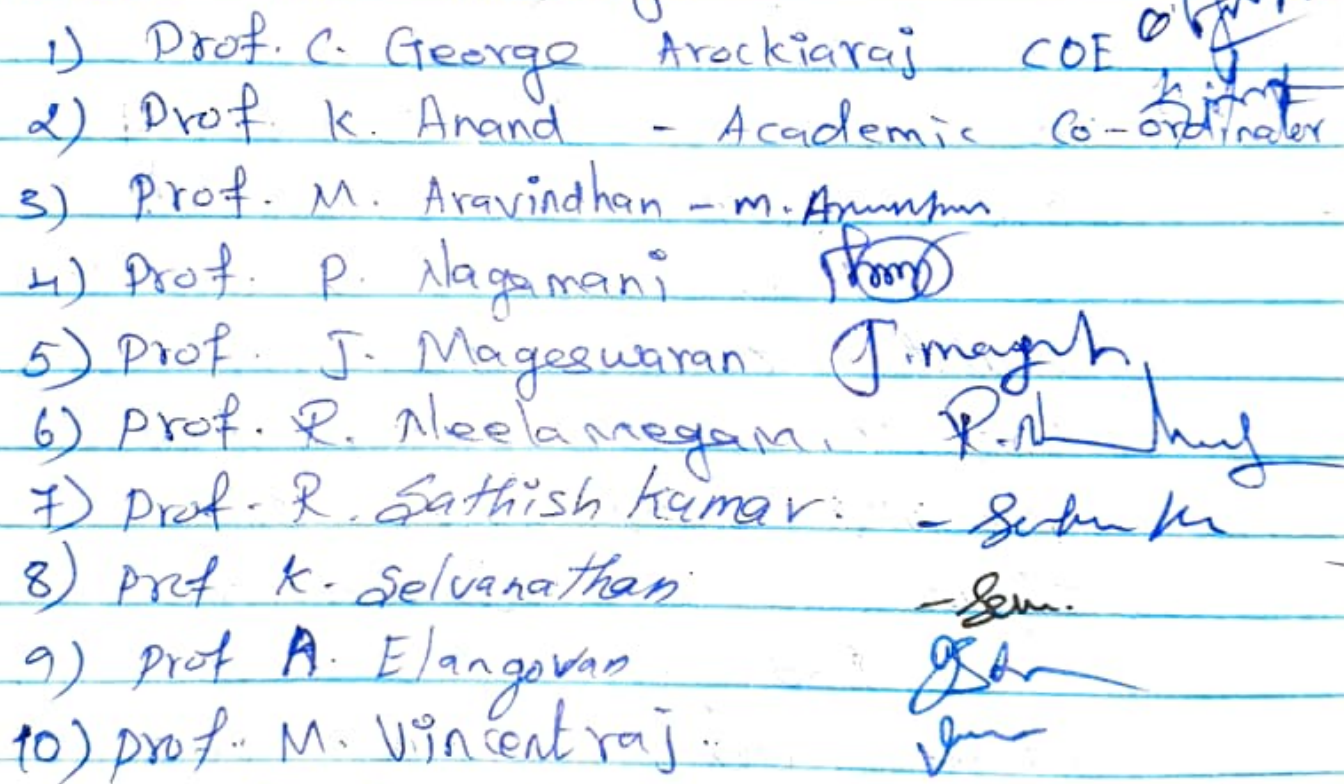 1) Prof. C. George Arockiaraj COE
2) Prof K. Anand - Academic Co-ordinator
3) Prof. M. Aravindhan - M.
4) Prof. P. Nagamani
5) Prof. J. Mageswaran J.
6) Prof. R. Neelamegam. R.
7) Prof. R. Sathish Kumar. -
8) Prof K. Selvanathan -
9) Prof A. Elangovan
10) Prof. M. Vincent raj.